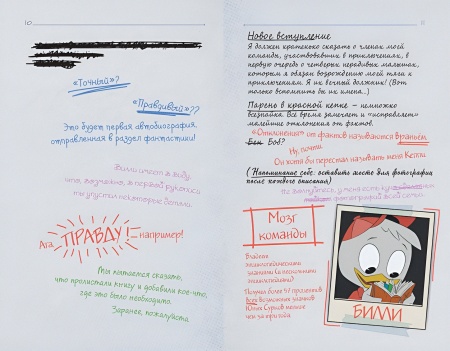 10
«Точный»?
«Правдивый»??
Это будет первая автобиография,
отправленная в раздел фантастики!
Билли имеет в виду,
что, возможно, в первой рукописи
ты упустил некоторые детали.
Ага, ПРАВДУ!, например!
Мы пытаемся сказать,
что пролистали книгу и добавили кое-что,
где это было необходимо.
Заранее, пожалуйста.
11
Новое вступление
Я должен кратенько сказать о членах моей
команды, участвовавших в приключениях, в
первую очередь о четверых нерадивых малышах,
которым я обязан возрождению моей тяги к
приключениям. Я их вечный должник! (Вот
только вспомнить бы их имена…)
Парень в красной кепке – немножко
всезнайка. Всё время замечает и «исправляет»
малейшие отклонения от фактов.
«Отклонения» от фактов называются враньём.
Бен Боб?
Ну, почти.
Он хотя бы перестал называть меня Кепки.
(Напоминание себе: оставить место для фотографии
после каждого описания)
Не волнуйтесь, у меня есть
фотографий всей семьи.
Мозг
команды
Владеет
энциклопедическими
знаниями (и несколькими
энциклопедиями)
Получил более 47 процентов
всех возможных значков
Юных Сурков меньше
чем за три года
БИЛЛИ